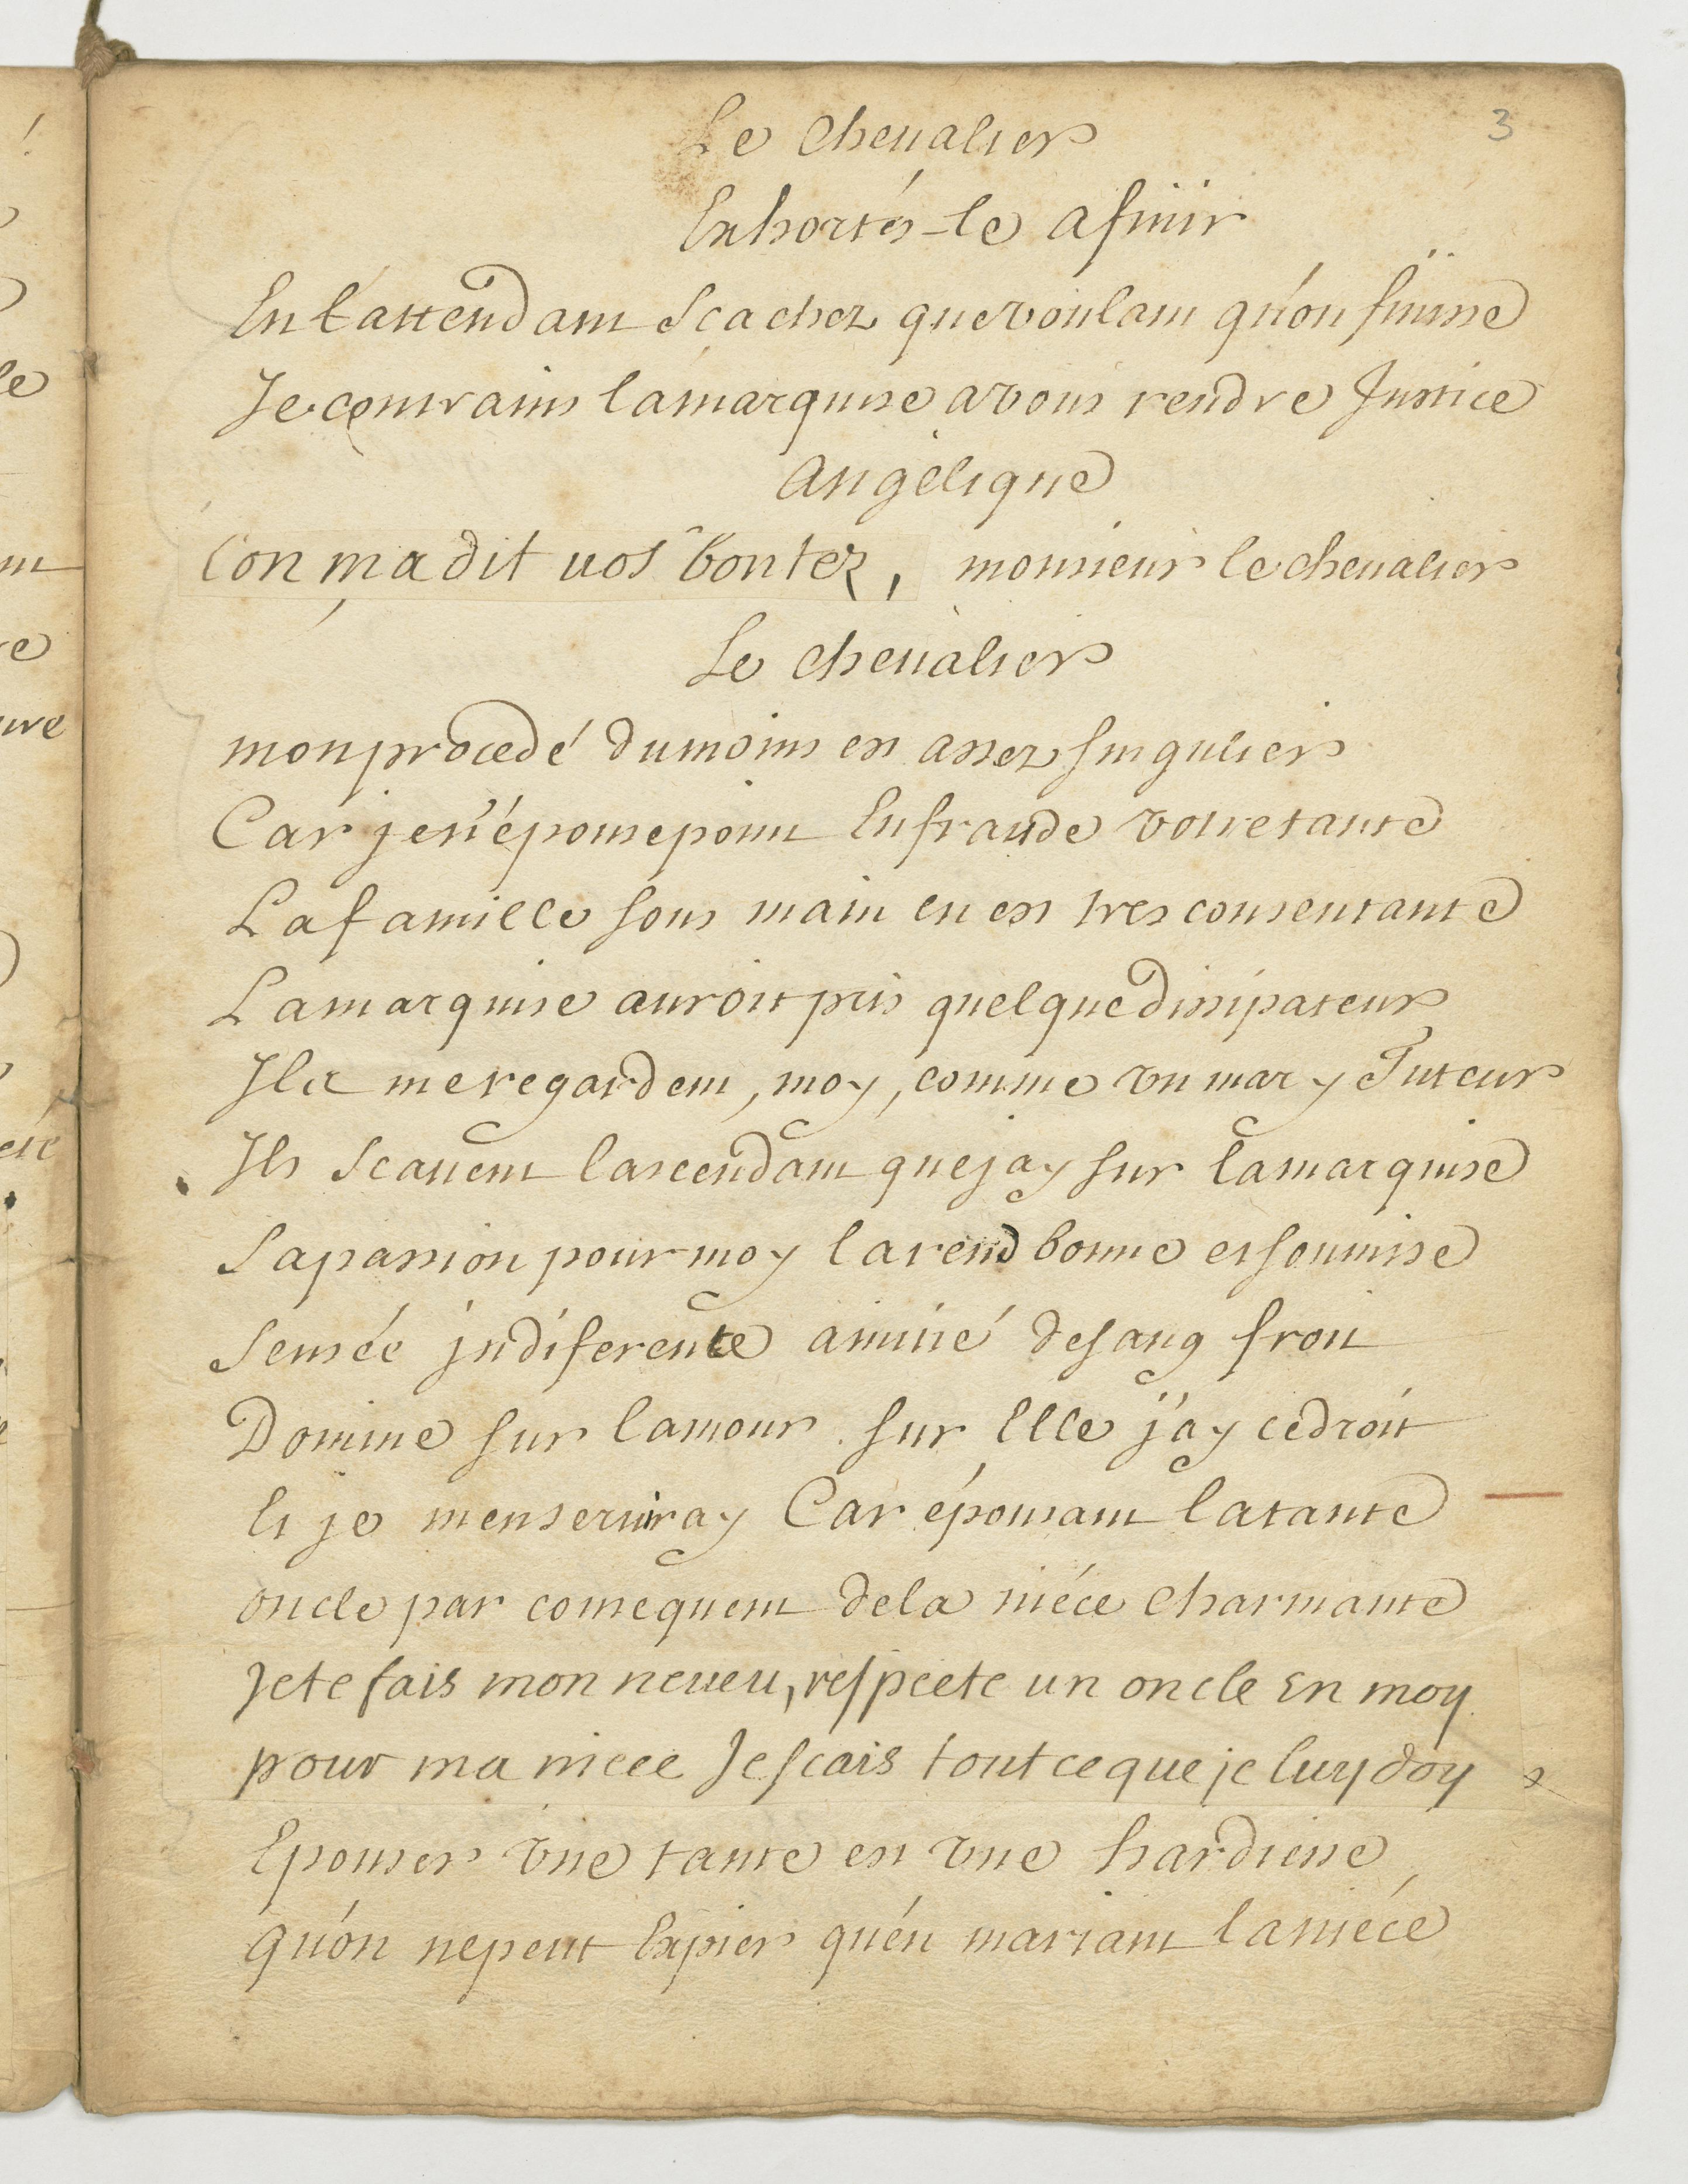 3
Le Chevalier
Exhortés-le a finir
En l'attendant Scachez que voulant qu'on finisse
Je contrains la marquise a vous rendre Justice
Angelique
L'on ma dit vos bontez, monsieur le chevalier
Le Chevalier
mon procedé du moins est assez singulier
Car je n'épouse point En fraude votre tante
La famille sous main en est tres consentante
La marquise auroit pris quelque dissipateur
Ils me regardent, moy, comme un mary Tuteur
Ils Scavent l'ascendant que jay sur la marquise
Sa passion pour moy la rend bonne et soumise
Sensée indiferente amitié de sang froit
Domine sur lamour sur Elle j'ay ce droit
Et je men serviray Car épousant la tante
oncle par consequent de la niéce Charmante
Je te fais mon neveu, respecte un oncle En moy
pour ma niece Je scais tout ce que je luy doy
Epouser une tante est une hardiesse
qu'on ne peut Expier qu'en mariant la niéce